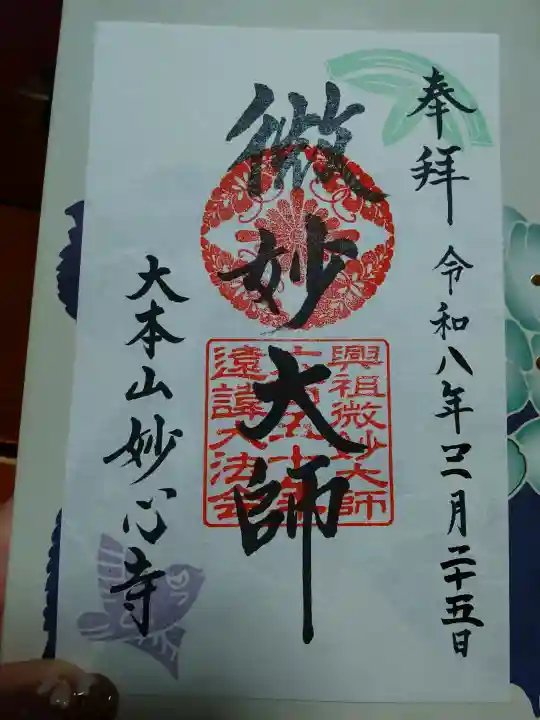 奉拝
令和八年三月二十五日
微妙大師
興祖微妙大師
六百五十年
遠諱大法会
大本山妙心寺